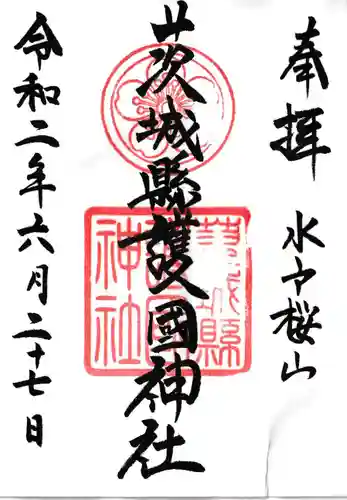 奉拝 水戸桜山
茨城縣護國神社
令和二年六月二十七日
茨城縣護國神社